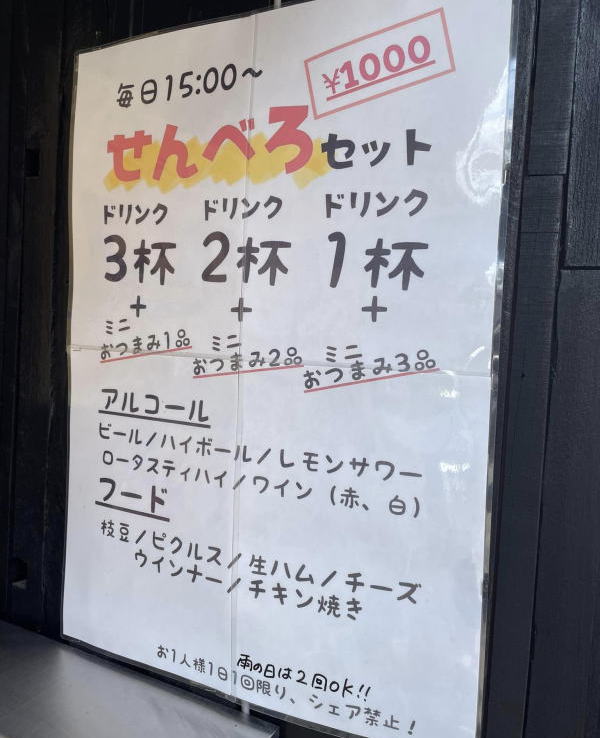 毎日15:00〜
¥1000
せんべろセット
ドリンク ドリンク ドリンク
3杯 2杯 1杯
+ + +
ミニ ミニ ミニ
おつまみ1品 おつまみ2品 おつまみ3品
アルコール
ビール/ハイボール/レモンサワー
ロータスティハイ/ワイン(赤、白)
フード
枝豆/ピクルス/生ハム/チーズ
ウインナー/チキン焼き
雨の日は2回OK!!
お1人様1日1回限り、シェア禁止!